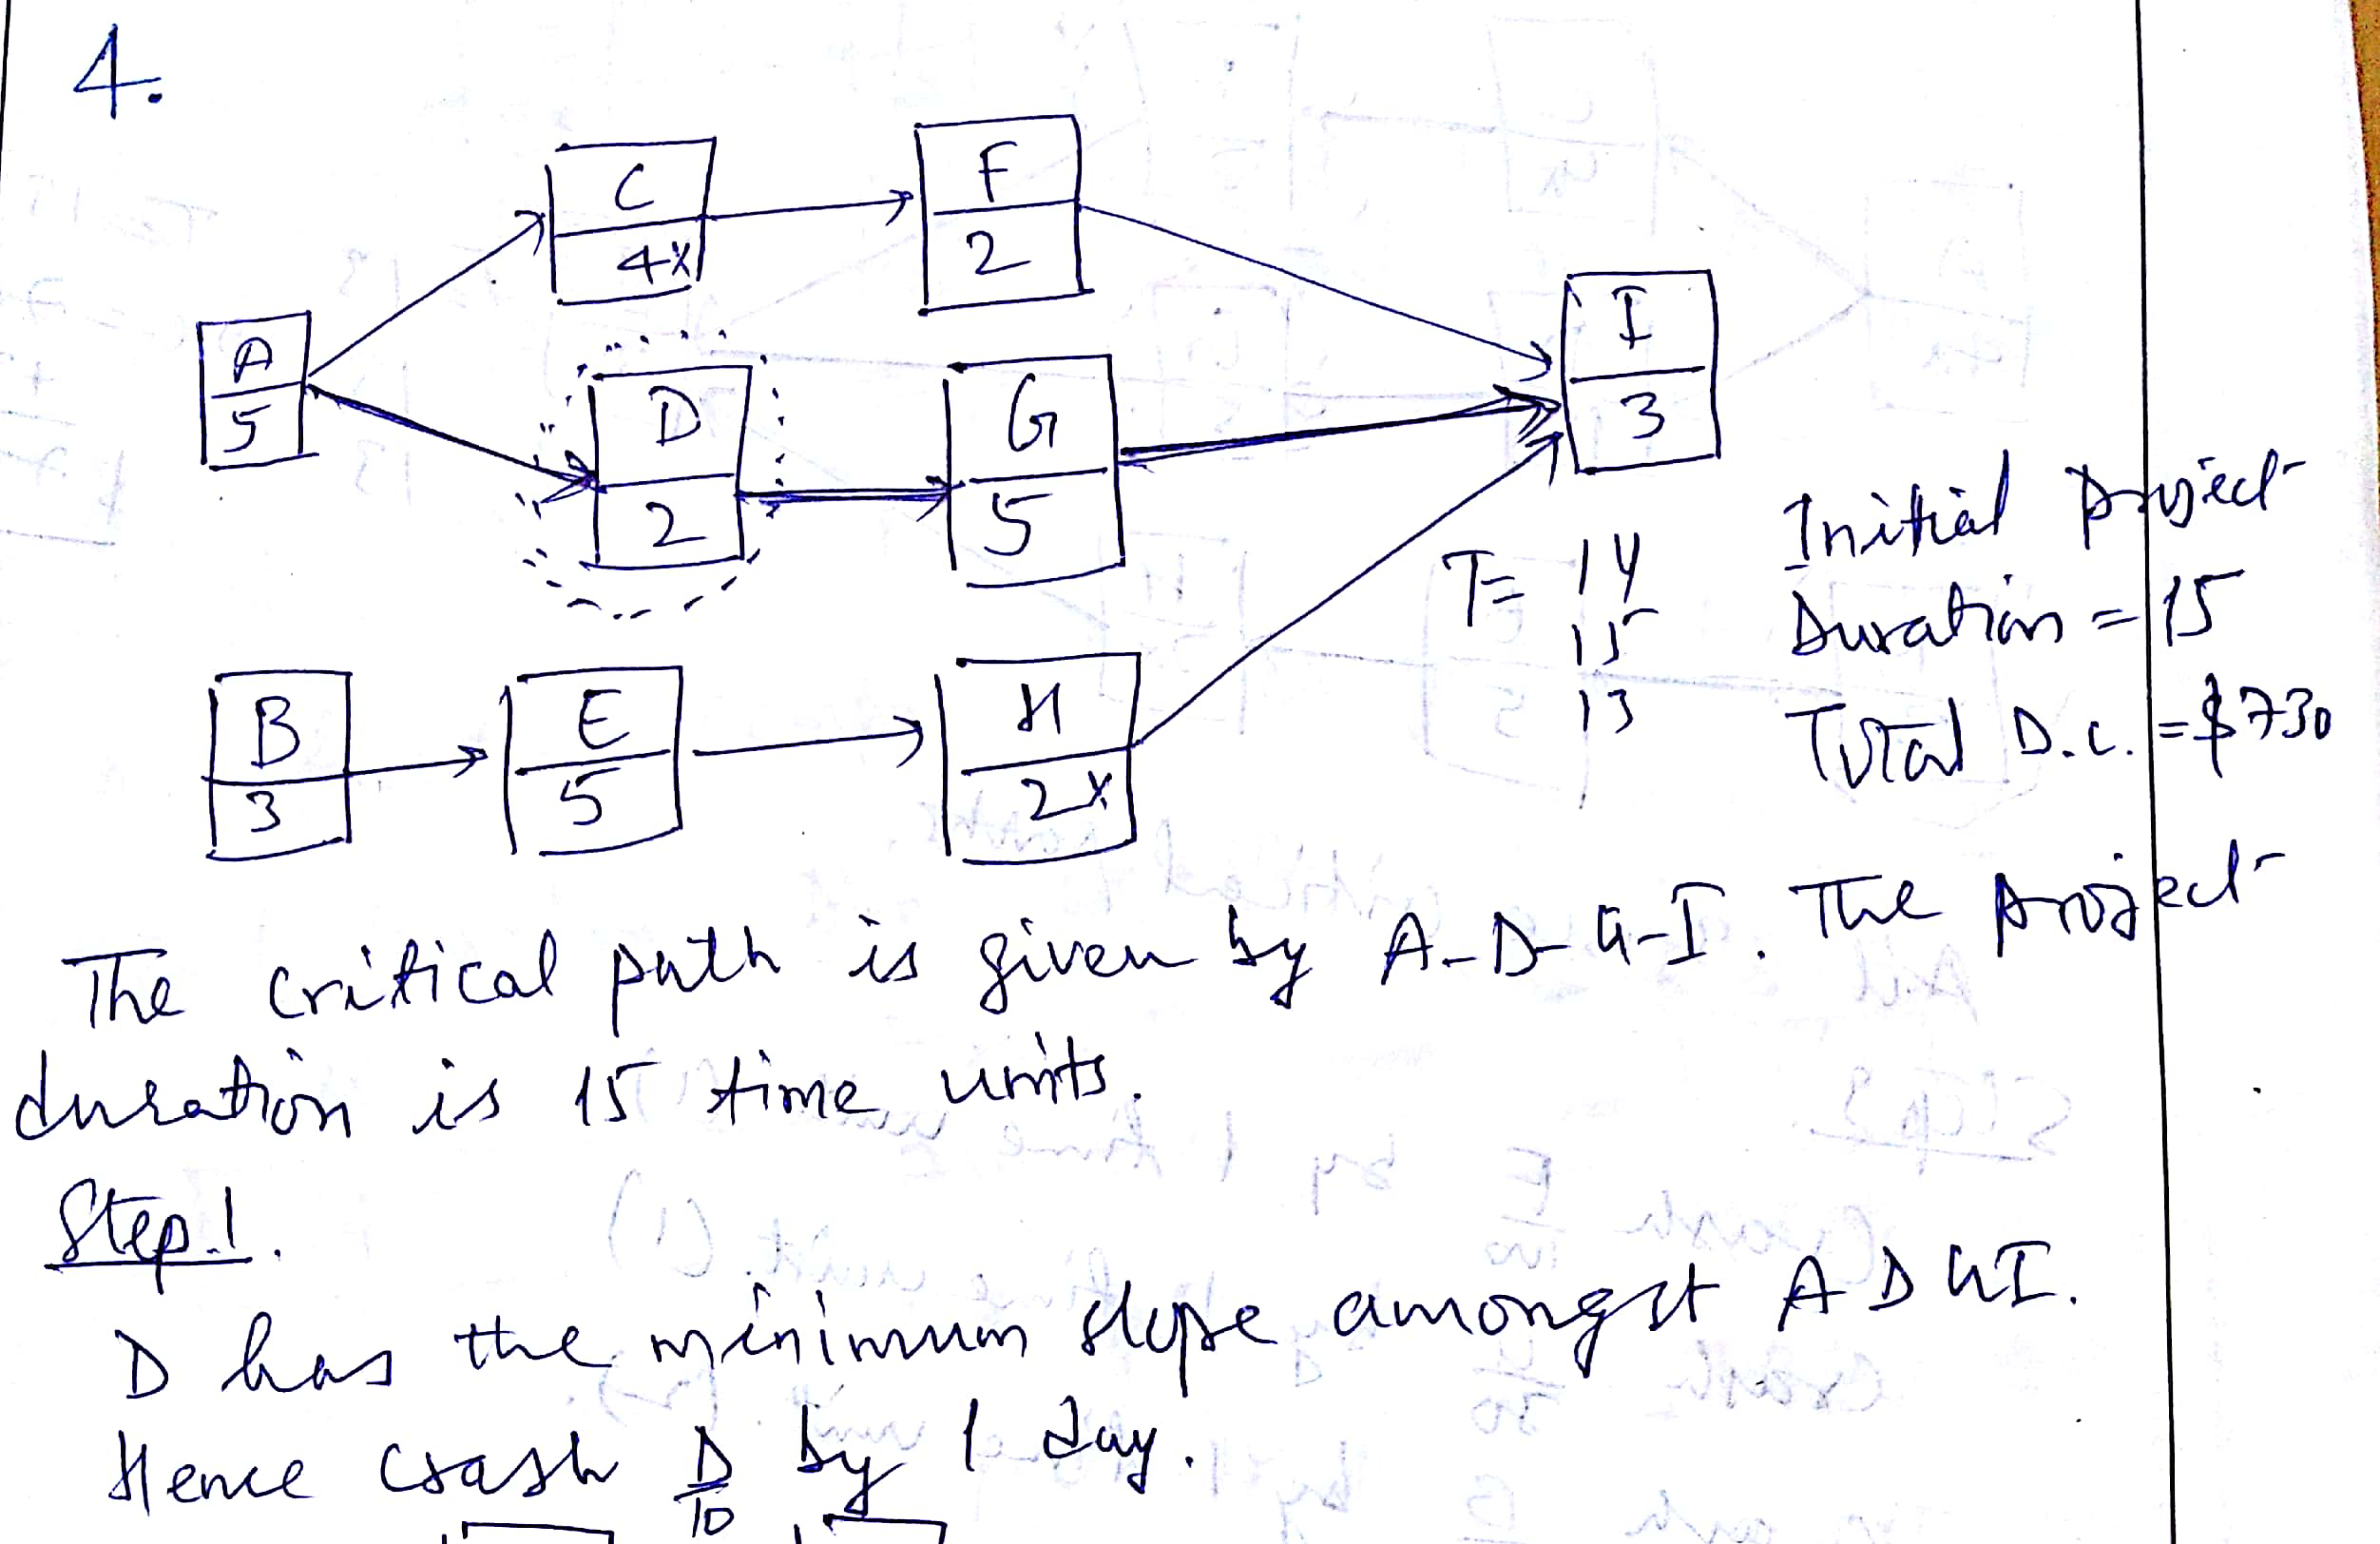 4.
C
4x
F
2
A
5
D
2
G
5
I
3
B
3
E
5
H
2x
T= 14
15
13
Initial Project
Duration = 15
Total D.C. = $730
The critical path is given by A-D-G-I. The project
duration is 15 time units.
Step.1.
D has the minimum slope amongst A D G I.
Hence crash D by 1 day.
10